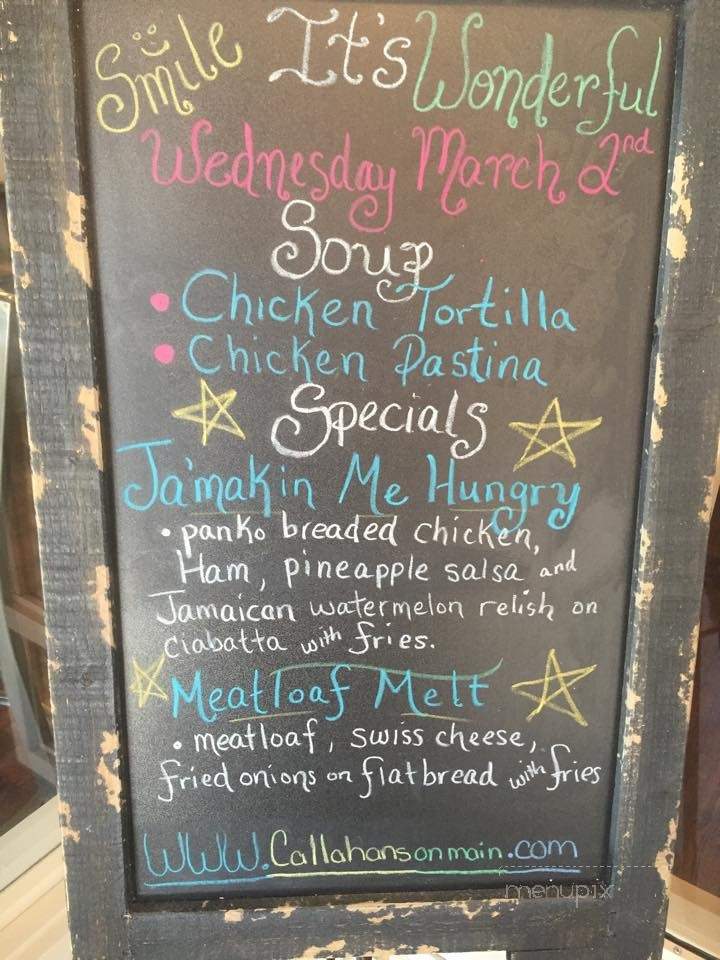 Smile It's Wonderful
Wednesday March 2nd
Soup
• Chicken Tortilla
• Chicken Pastina
Specials
Ja'makin Me Hungry
• panko breaded chicken,
Ham, pineapple salsa and
Jamaican watermelon relish on
ciabatta with fries.
Meatloaf Melt
• meatloaf, swiss cheese,
fried onions on flatbread with fries
WWW.Callahansonmain.com
menupix